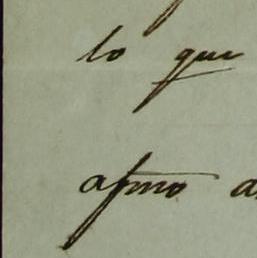 lo que
afmo a